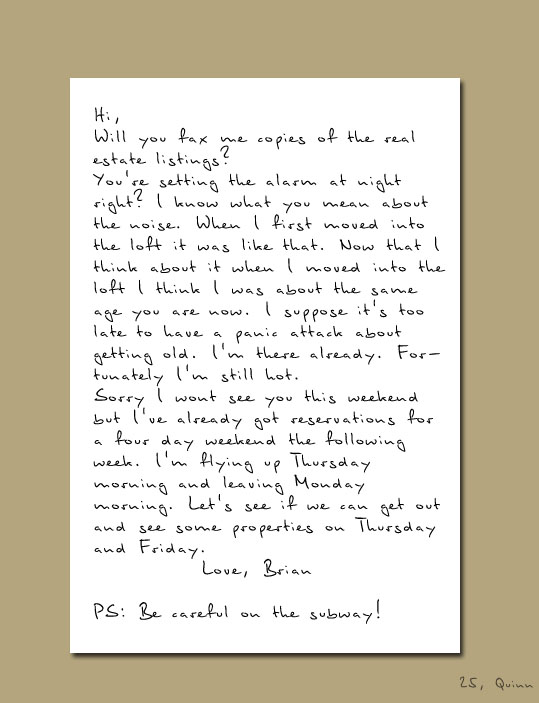 Hi,
Will you fax me copies of the real
estate listings?
You're setting the alarm at night
right? I know what you mean about
the noise. When I first moved into
the loft it was like that. Now that I
think about it when I moved into the
loft I think I was about the same
age you are now. I suppose it's too
late to have a panic attack about
getting old. I'm there already. For-
tunately I'm still hot.
Sorry I wont see you this weekend
but I've already got reservations for
a four day weekend the following
week. I'm flying up Thursday
morning and leaving Monday
morning. Let's see if we can get out
and see some properties on Thursday
and Friday.
Love, Brian
PS: Be careful on the subway!
25, Quinn